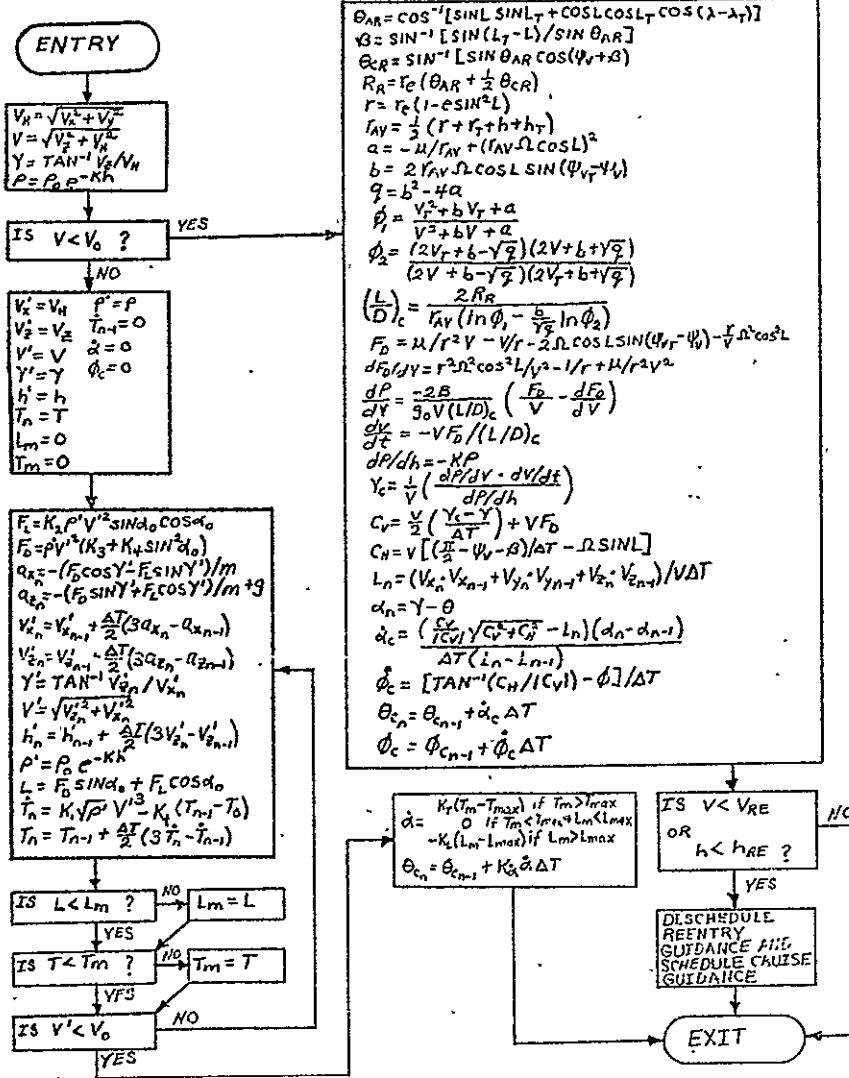 ENTRY
V_H = √(V_x² + V_y²)
V = √(V_z² + V_H²)
γ = TAN⁻¹ V_z/V_H
ρ = ρ₀ e^(-Kh)
IS V < V₀ ?
YES
NO
V'_x = V_H ρ' = ρ
V'_z = V_z Ṫ_n-1 = 0
V' = V α̇ = 0
γ' = γ ϕ_c = 0
h' = h
T_n = T
L_m = 0
T_m = 0
F_L = K₂ρ'V'² SINα₀ COSα₀
F_D = ρ'V'²(K₃ + K₄ SIN²α₀)
a_xn = -(F_D COSγ' - F_L SINγ')/m
a_zn = -(F_D SINγ' + F_L COSγ')/m + g
V'_xn = V'_xn-1 + ΔT/2 (3a_xn - a_xn-1)
V'_zn = V'_zn-1 - ΔT/2 (3a_zn - a_zn-1)
γ' = TAN⁻¹ V'_zn / V'_xn
V' = √(V'_zn² + V'_xn²)
h'_n = h'_n-1 + ΔT/2 (3V'_zn - V'_zn-1)
ρ' = ρ₀ e^(-Kh')
L = F_D SINα₀ + F_L COSα₀
Ṫ_n = K₁√ρ' V'³ - K_t (T_n-1 - T₀)
T_n = T_n-1 + ΔT/2 (3Ṫ_n - Ṫ_n-1)
IS L < L_m ?
NO
L_m = L
YES
IS T < T_m ?
NO
T_m = T
YES
IS V' < V₀
NO
YES
θ_AR = COS⁻¹ [SINL SINL_T + COSL COSL_T COS (λ-λ_T)]
β = SIN⁻¹ [SIN(L_T - L)/SIN θ_AR]
θ_CR = SIN⁻¹ [SIN θ_AR COS(ψ_V + β)
R_R = r_e (θ_AR + ½ θ_CR)
r = r_e (1 - e SIN²L)
r_AV = ½ (r + r_T + h + h_T)
a = -μ/r_AV + (r_AV Ω COSL)²
b = 2 r_AV Ω COSL SIN(ψ_VT - ψ_V)
q = b² - 4a
ϕ₁ = (V_T² + bV_T + a)/(V² + bV + a)
ϕ₂ = (2V_T + b - √q)(2V + b + √q)/(2V + b - √q)(2V_T + b + √q)
(L/D)_c = 2R_R/r_AV (ln ϕ₁ - b/√q ln ϕ₂)
F_D = μ/r²V - V/r - 2Ω COSL SIN(ψ_VT - ψ_V) - r/V Ω² COS²L
dF_D/dV = r²Ω² COS²L/V² - 1/r + μ/r²V²
dρ/dV = -2B/g₀V(L/D)_c (F_D/V - dF_D/dV)
dV/dt = -VF_D/(L/D)_c
dρ/dh = -Kρ
γ_c = 1/V (dρ/dV · dV/dt / dρ/dh)
C_V = V/2 (γ_c - γ / ΔT) + VF_D
C_H = V [(π/2 - ψ_V - β)/ΔT - Ω SINL]
L_n = (V_xn · V_xn-1 + V_yn · V_yn-1 + V_zn · V_zn-1)/VΔT
α_n = γ - θ
α̇_c = (C_V/|C_V| √(C_V² + C_H²) - L_n)(α_n - α_n-1) / ΔT (L_n - L_n-1)
ϕ̇_c = [TAN⁻¹(C_H/|C_V|) - ϕ]/ΔT
θ_cn = θ_cn-1 + α̇_c ΔT
ϕ_c = ϕ_cn-1 + ϕ̇_c ΔT
K_T(T_m - T_max) if T_m > T_max
α̇ = 0 if T_m < T_max + L_m < L_max
-K_L(L_m - L_max) if L_m > L_max
θ_cn = θ_cn-1 + K_α̇ α̇ ΔT
IS V < V_RE
OR
h < h_RE ?
NO
YES
DESCHEDULE
REENTRY
GUIDANCE AND
SCHEDULE CRUISE
GUIDANCE
EXIT